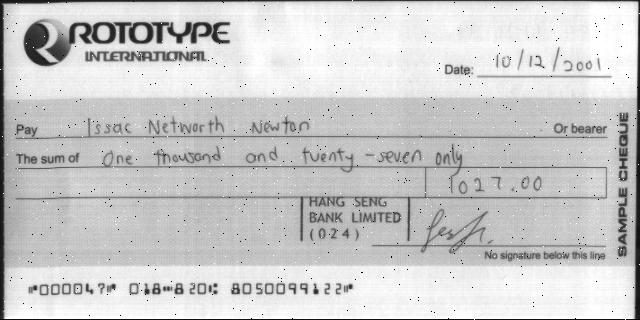 ROTOTYPE
INTERNATIONAL
Date: 10/12/2001
Pay Issac Networth Newton Or bearer
The sum of One thousand and twenty-seven only
1027.00
HANG SENG
BANK LIMITED
(024)
No signature below this line
SAMPLE CHEQUE
⑈000047⑈ 018⑉820⑆ 8050099122⑈